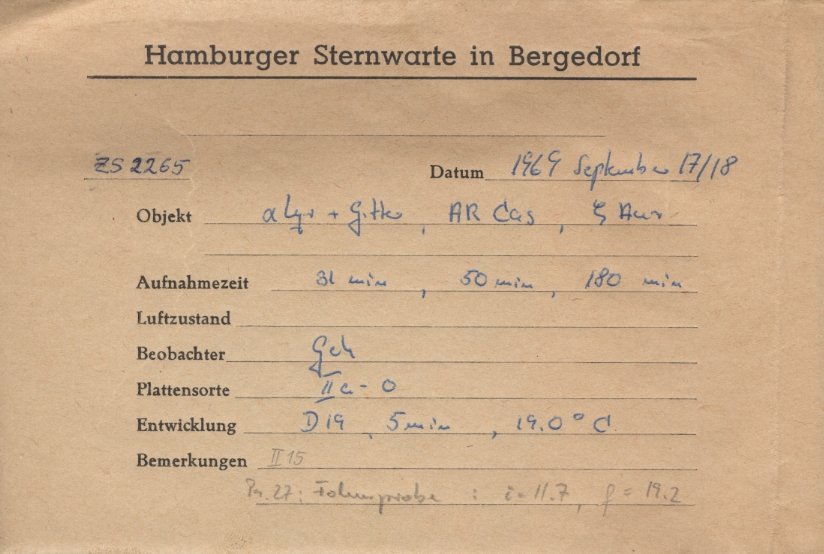 Hamburger Sternwarte in Bergedorf
ZS 2265 Datum 1969 September 17/18
Objekt α Lyr + Gitter, AR Cas, ζ Aur
Aufnahmezeit 31 min, 50 min, 180 min
Luftzustand
Beobachter Geh
Plattensorte IIa-O
Entwicklung D19, 5 min, 19.0° C
Bemerkungen II 15
27: : i = 11.7, f = 19.2